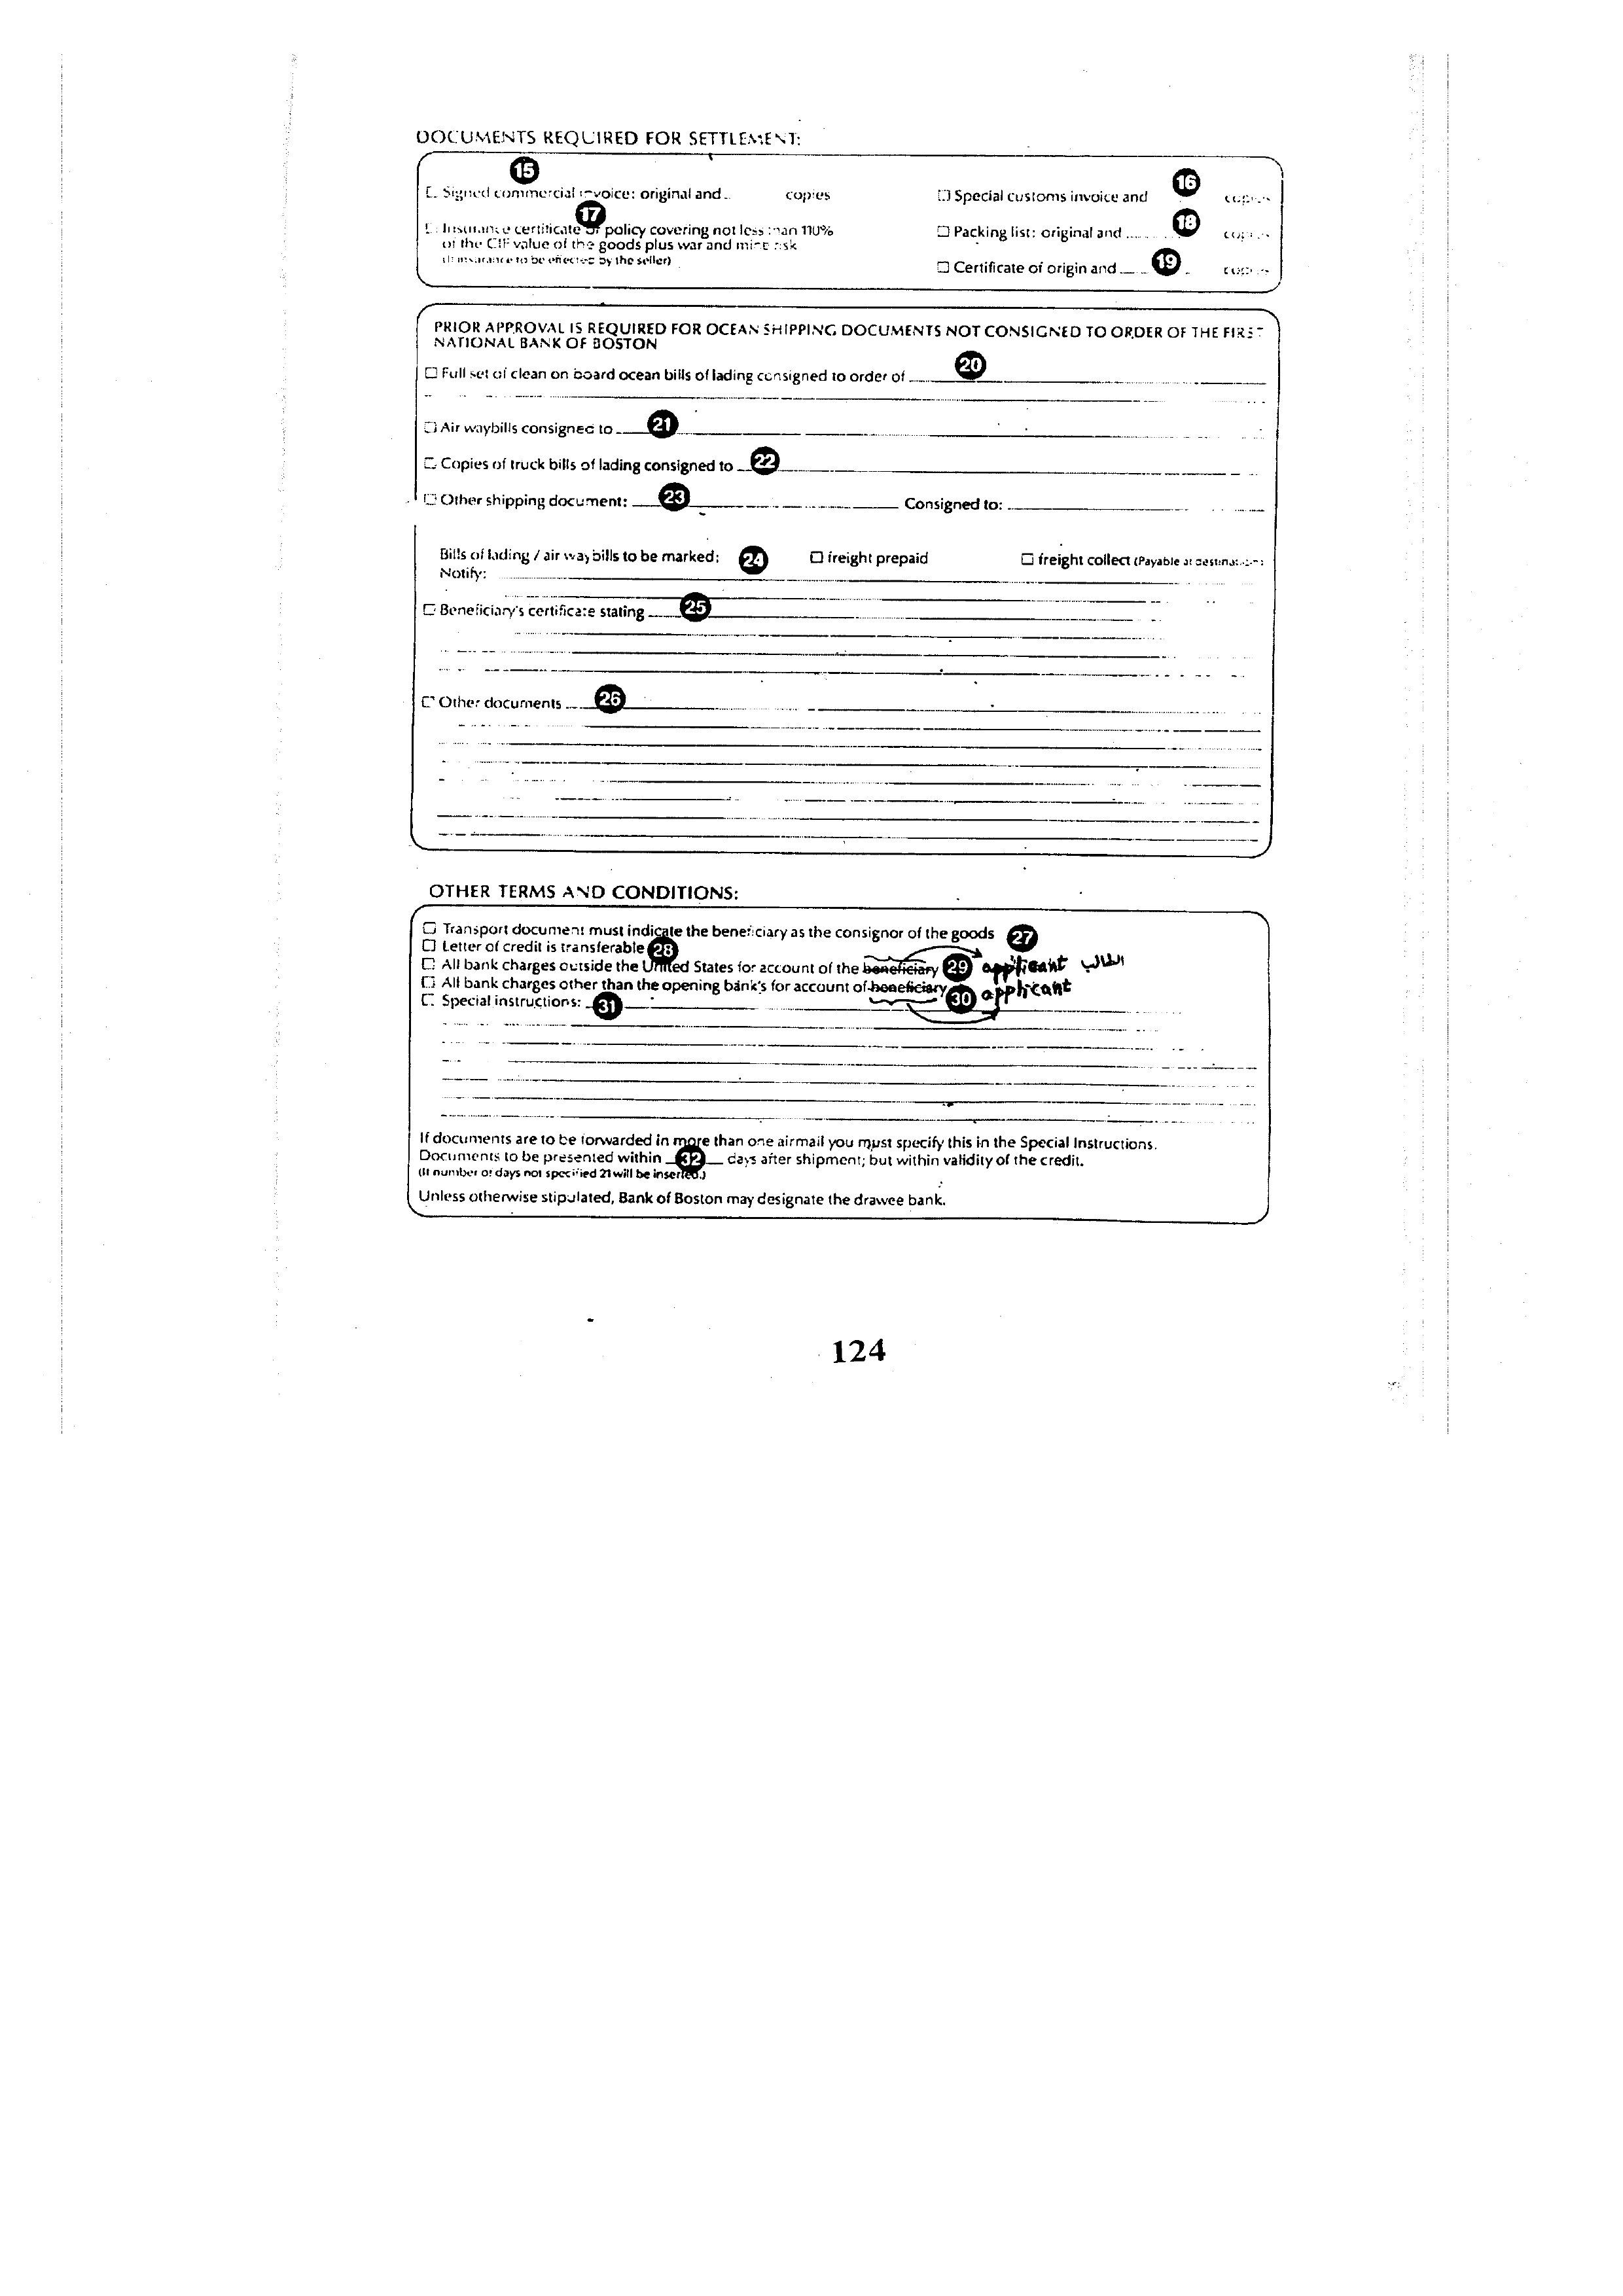 DOCUMENTS REQUIRED FOR SETTLEMENT:
15
Signed commercial invoice: original and copies
16
Special customs invoice and copies
17
Insurance certificate or policy covering not less than 110%
of the CIF value of the goods plus war and mine risk
(If insurance to be effected by the seller)
18
Packing list: original and copies
Certificate of origin and 19 copies
PRIOR APPROVAL IS REQUIRED FOR OCEAN SHIPPING DOCUMENTS NOT CONSIGNED TO ORDER OF THE FIRST
NATIONAL BANK OF BOSTON
Full set of clean on board ocean bills of lading consigned to order of 20
Air waybills consigned to 21
Copies of truck bills of lading consigned to 22
Other shipping document: 23 Consigned to:
Bills of lading / air waybills to be marked: 24 freight prepaid freight collect (Payable at destination)
Notify:
Beneficiary's certificate stating 25
Other documents 26
OTHER TERMS AND CONDITIONS:
Transport document must indicate the beneficiary as the consignor of the goods 27
Letter of credit is transferable 28
All bank charges outside the United States for account of the beneficiary 29 applicant الطالب
All bank charges other than the opening bank's for account of beneficiary 30 applicant
Special instructions: 31
If documents are to be forwarded in more than one airmail you must specify this in the Special Instructions.
Documents to be presented within 32 days after shipment; but within validity of the credit.
(If number of days not specified 21 will be inserted.)
Unless otherwise stipulated, Bank of Boston may designate the drawee bank.
124